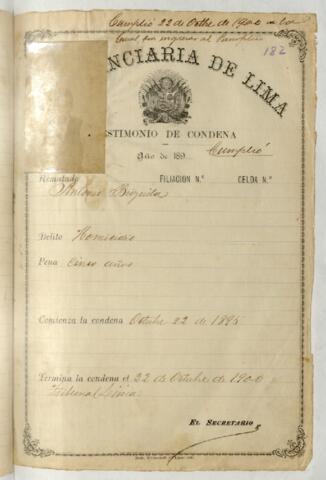 Cumplió 22 de Octbre de 1900
182
NCIARIA DE LIMA
STIMONIO DE CONDENA
Año de 189
Cumplió
Rematado
FILIACION N.º
CELDA N.º
Antonio
Delito Homicidio
Pena Cinco años
Comienza la condena Octubre 22 de 1895
Termina la condena el 22 de Octubre de 1900
Tribunal Lima
EL SECRETARIO